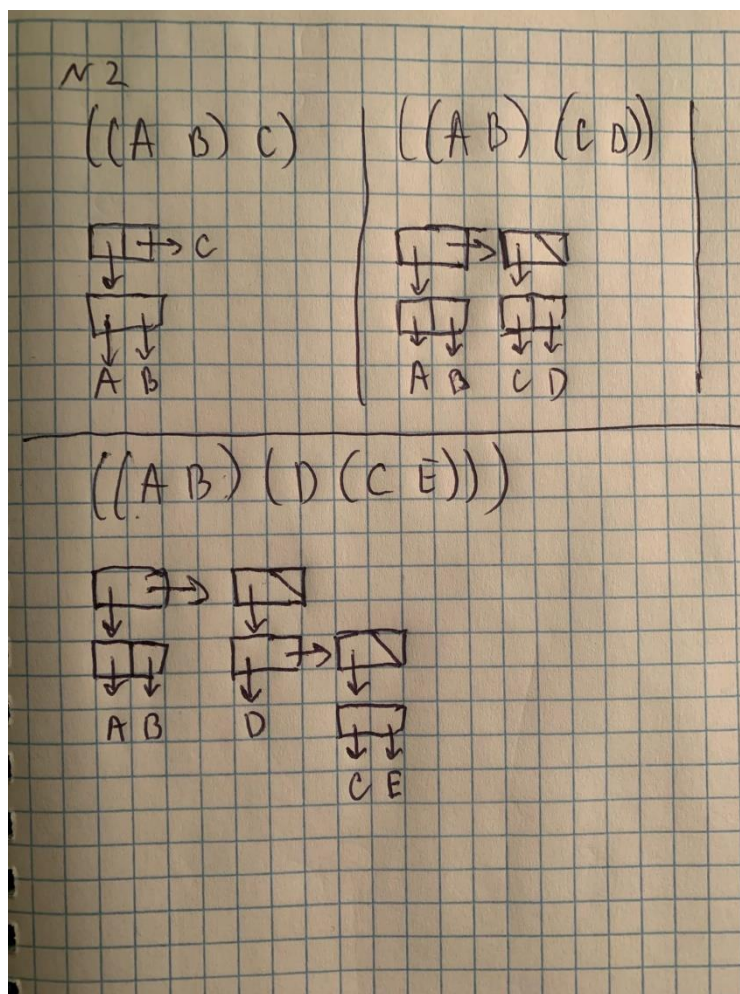 N2
((A B) C)
((A B) (C D))
C
A B
A B C D
((A B) (D (C E)))
A B D
C E